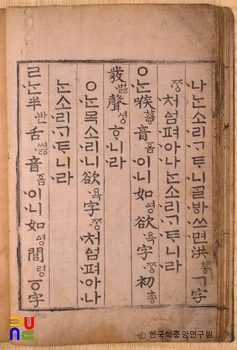 나ᄂᆞᆫ소리ᄀᆞᄐᆞ니ᄀᆞᆯᄫᅡ쓰면洪ᅘᅩᇰㄱ字
ᄍᆞᆼ처ᅀᅥᆷ펴아나ᄂᆞᆫ소리ᄀᆞᄐᆞ니라
ㅇᄂᆞᆫ喉ᅘᅮᇢ音ᅙᅳᆷ이니如ᅀᅧᆼ欲욕字ᄍᆞᆼ初총
發벓聲셩ᄒᆞ니라
ㅇᄂᆞᆫ목소리니欲욕字ᄍᆞᆼ처ᅀᅥᆷ펴아나
ᄂᆞᆫ소리ᄀᆞᄐᆞ니라
ㄹᄂᆞᆫ半반舌쎯音ᅙᅳᆷ이니如ᅀᅧᆼ閭령ㆆ字
ⓒ 한국학중앙연구원